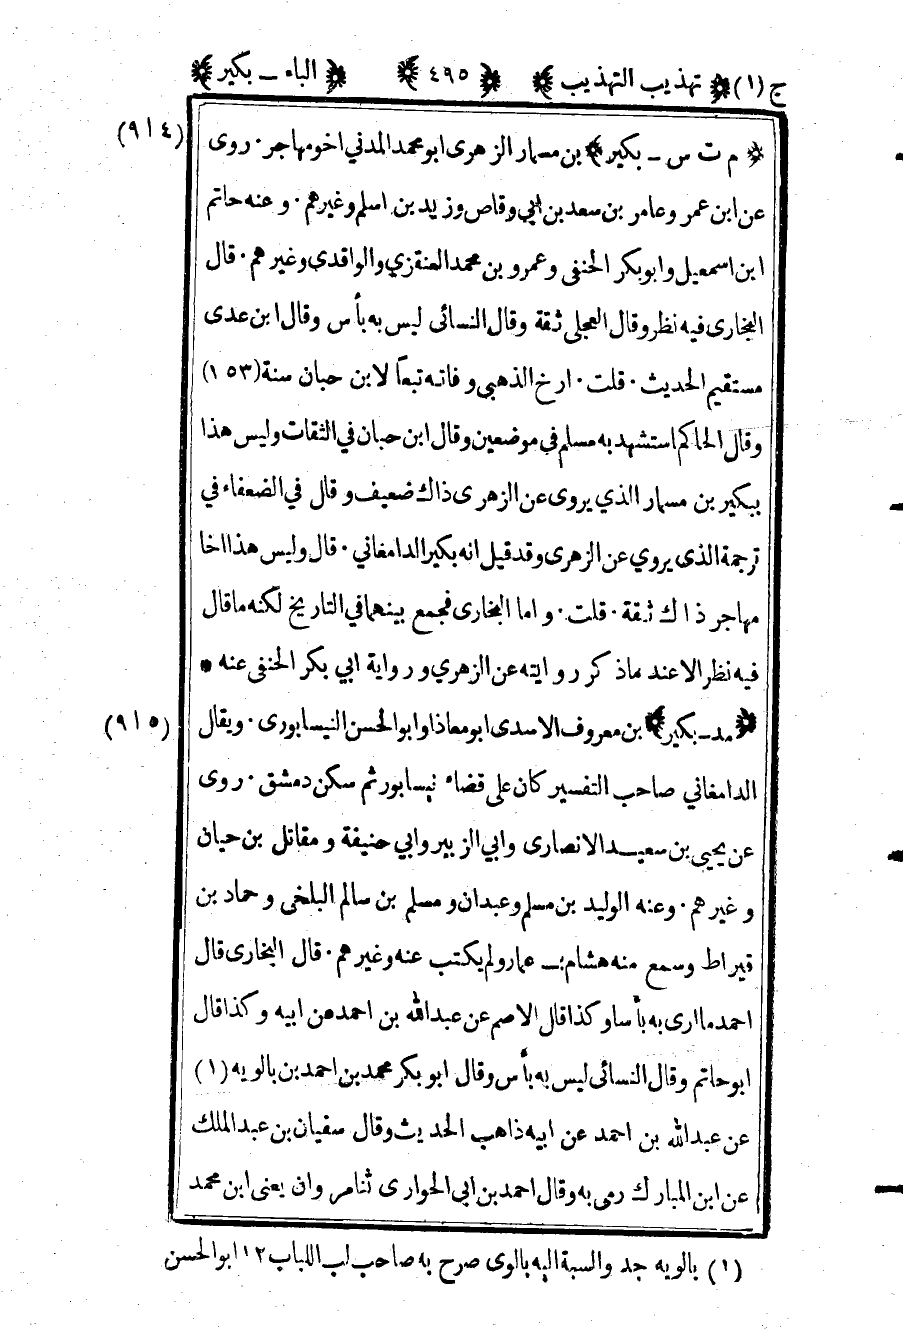 ج (١) ﴿ تهذيب التهذيب ﴾ ﴿ ٤٩٥ ﴾ ﴿ الباء ـ بكير ﴾
(٩١٤)
﴿ م ت س ـ بكير ﴾ بن مسمار الزهرى ابو محمد المدني اخو مهاجر ٠ روى
عن ابن عمر وعامر بن سعد بن ابي وقاص وزيد بن اسلم وغيرهم ٠ وعنه حاتم
ابن اسمعيل وابو بكر الحنفى وعمرو بن محمد العنقزي والواقدى وغيرهم ٠ قال
البخارى فيه نظر وقال العجلى ثقة وقال النسائى ليس به بأس وقال ابن عدى
مستقيم الحديث ٠ قلت ٠ ارخ الذهبي وفاته تبعاً لابن حبان سنة (١٥٣)
وقال الحاكم استشهد به مسلم في موضعين وقال ابن حبان في الثقات وليس هذا
ببكير بن مسمار الذي يروى عن الزهرى ذاك ضعيف وقال في الضعفاء في
ترجمة الذى يروي عن الزهرى وقد قيل انه بكير الدامغاني ٠ قال وليس هذا اخا
مهاجر ذاك ثقة ٠ قلت ٠ واما البخارى فجمع بينهما في التاريخ لكنه ما قال
فيه نظر الا عند ماذكر روايته عن الزهري ورواية ابي بكر الحنفى عنه •
(٩١٥)
﴿ مد ـ بكير ﴾ بن معروف الاسدى ابو معاذ او ابو الحسن النيسابورى ٠ ويقال
الدامغاني صاحب التفسير كان على قضاء نيسابور ثم سكن دمشق ٠ روى
عن يحيى بن سعيد الانصارى وابي الزبير وابي حنيفة ومقاتل بن حيان
وغيرهم ٠ وعنه الوليد بن مسلم وعبدان ومسلم بن سالم البلخى وحماد بن
قيراط وسمع منه هشام بن عمار ولم يكتب عنه وغيرهم ٠ قال البخارى قال
احمد ما ارى به بأسا وكذا قال الاصم عن عبد الله بن احمد عن ابيه وكذا قال
ابو حاتم وقال النسائى ليس به بأس وقال ابو بكر محمد بن احمد بن بالويه (١)
عن عبد الله بن احمد عن ابيه ذاهب الحديث وقال سفيان بن عبد الملك
عن ابن المبارك رمى به وقال احمد بن ابي الحوارى ثنا مروان يعنى ابن محمد
(١) بالويه جد والسبة اليه بالوى صرح به صاحب لب اللباب ١٢ ابو الحسن